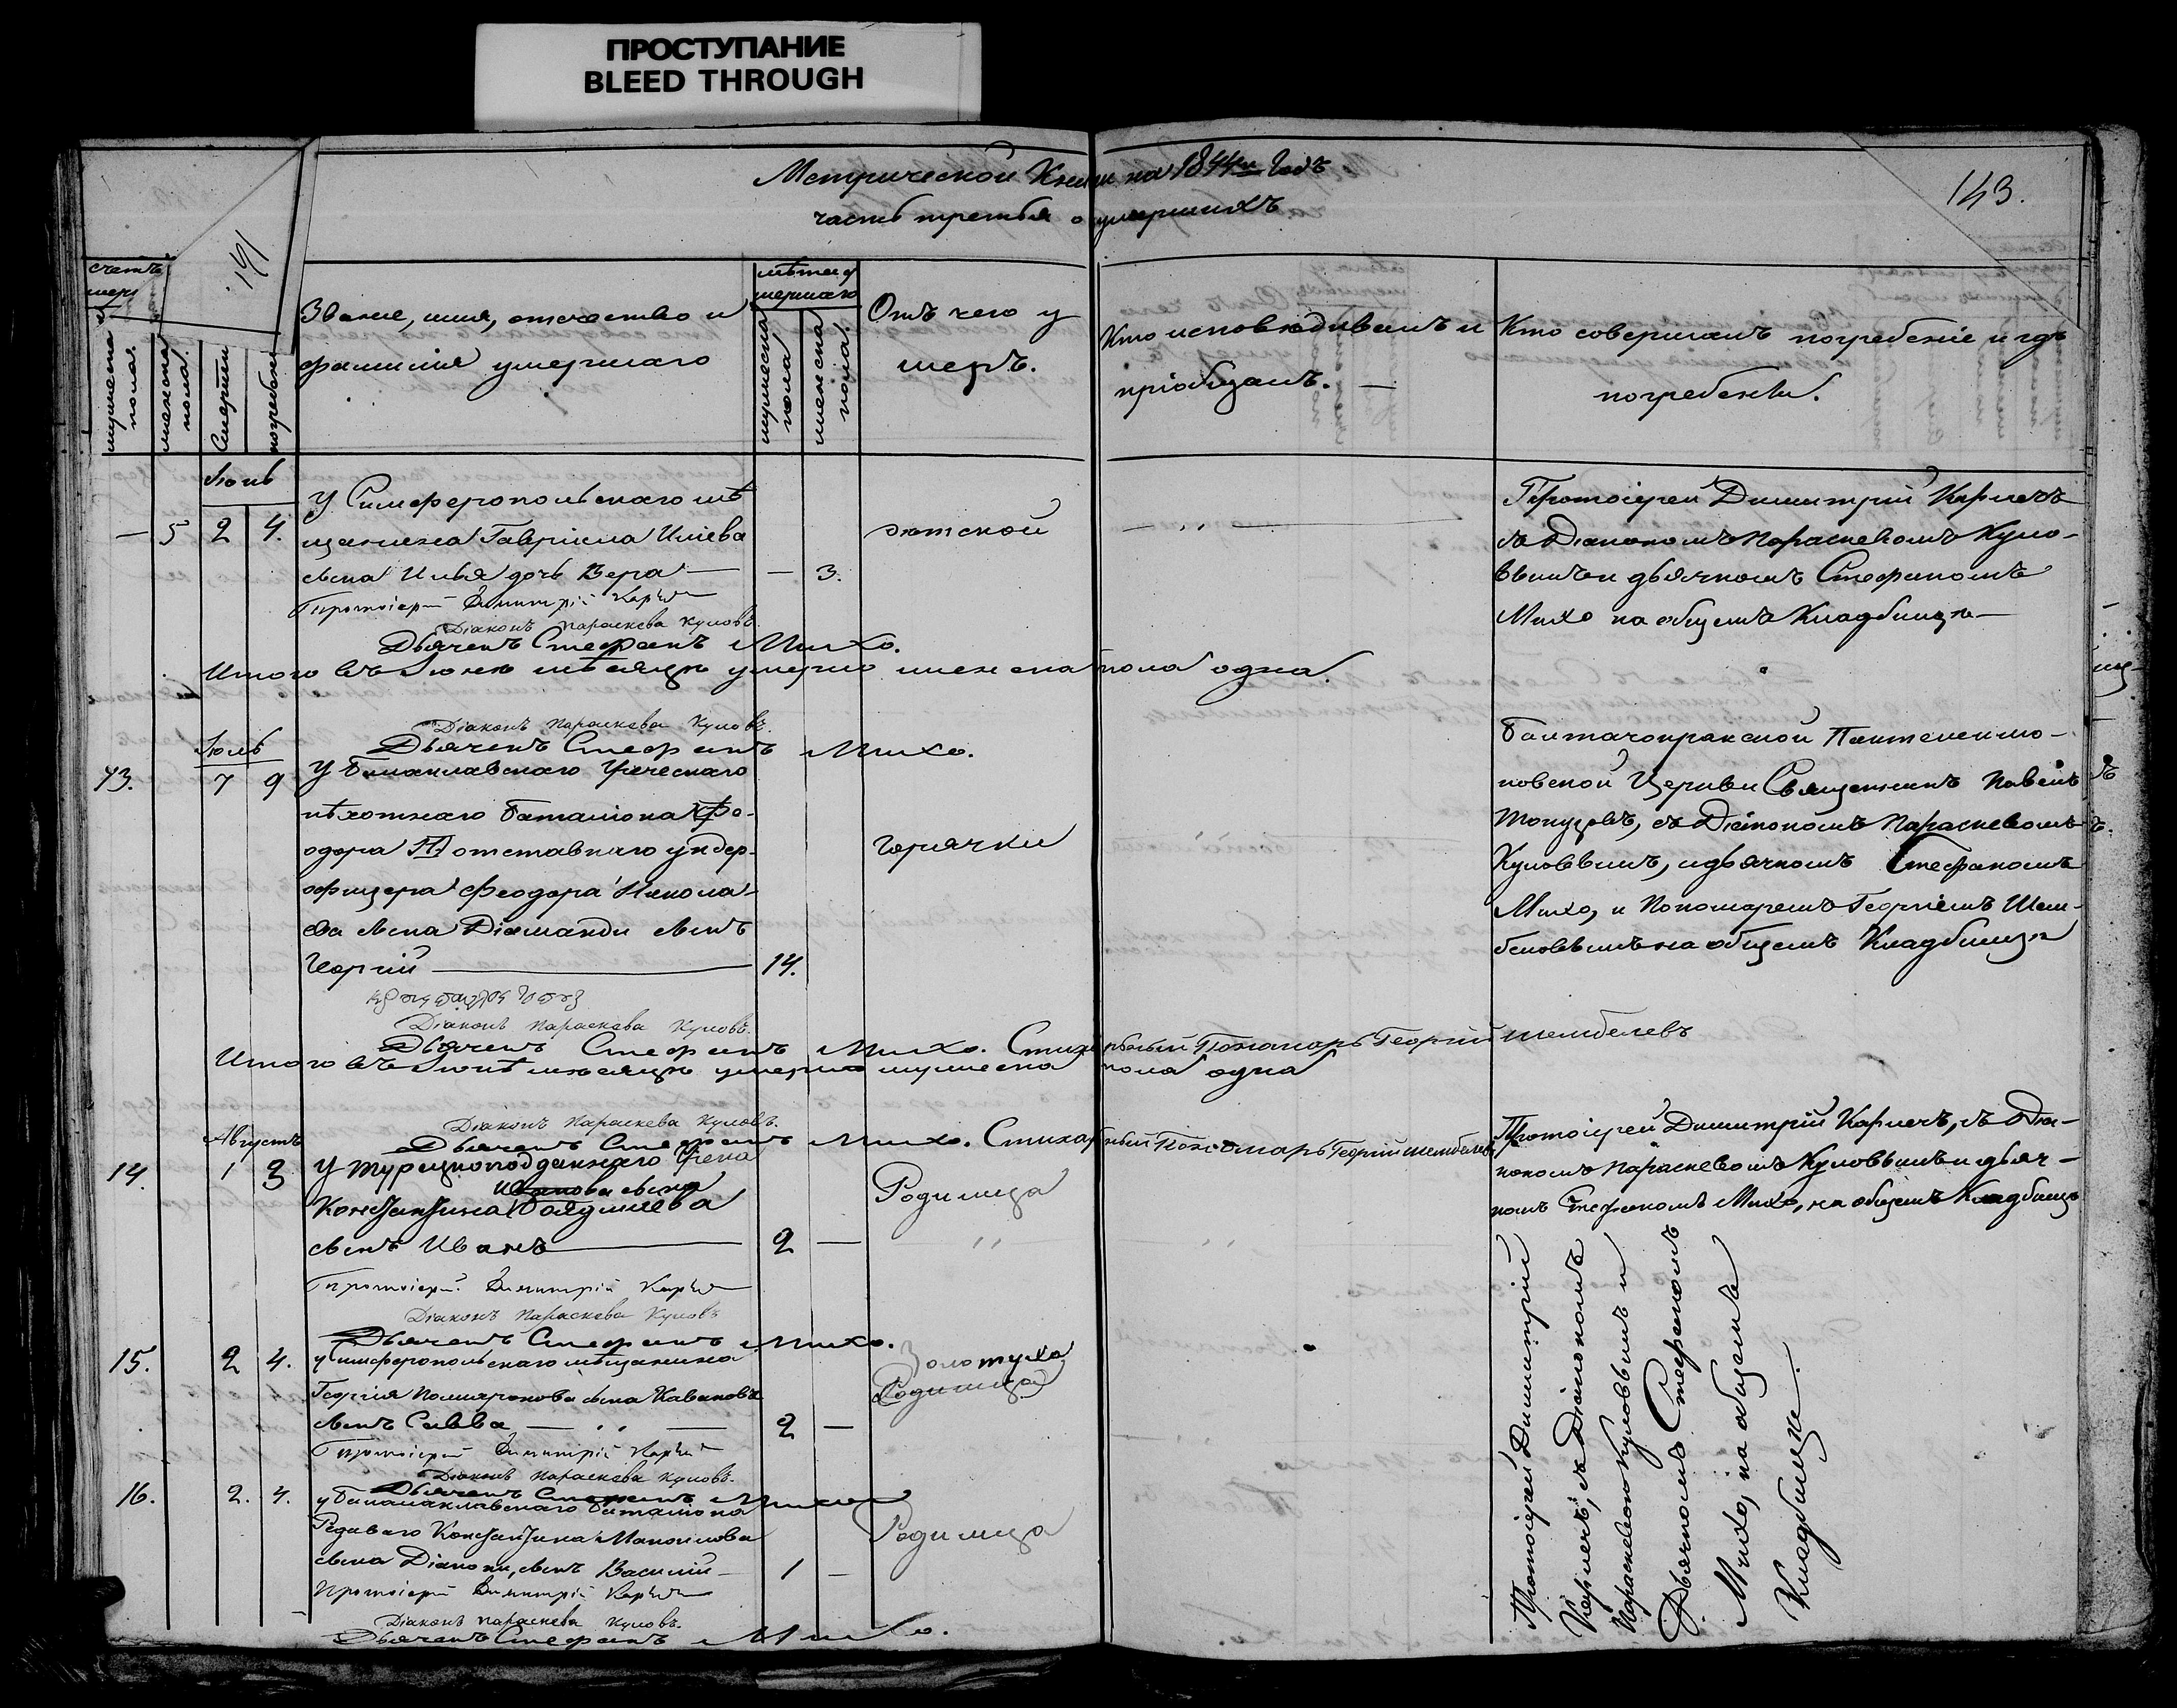 ПРОСТУПАНИЕ
BLEED THROUGH
Метрической Книги на 1844й Годъ
часть третья о умершихъ
143.
191
счетъ
мужеска пола.
женска пола.
Смерти
погребенія
Званіе, имя, отечество и
фамилія умершаго
лѣта у
мершаго
мужеска пола
женска пола.
Отъ чего у
меръ.
Кто исповѣдывалъ и
пріобщалъ. —
Кто совершалъ погребеніе и гдѣ
погребены.
Іюнь
— 5 2 4.
У Симферопольскаго мѣ
щанина Гавріила Иліева
сына Илья дочь Вера — — 3.
дѣтской
Протоіерей Димитрій
Діаконъ Параскева Кумовъ.
Дьячекъ Стефанъ Михо.
Протоіерей Димитрій
съ Діакономъ Параскевомъ Кумо-
вымъ и дьячкомъ Стефаномъ
Михо на общемъ Кладбищѣ —
Итого въ Іюнѣ мѣсяцѣ умерло женска пола одна.
Діаконъ Параскева Кумовъ.
Дьячекъ Стефанъ Михо.
Іюль
13. 7 9
У Балаклавскаго Греческаго
пѣхотнаго Баталіона
отставнаго ундер-
офицера Феодора Никола-
ева сына Діаманди сынъ
Георгій — 14.
Горячки
Пантелеимо-
новской Церкви Священникъ Павелъ
съ Діакономъ Параскевомъ
Кумовымъ, и дьячкомъ Стефаномъ
Михо, и Пономаремъ Георгіемъ Шем-
белевымъ на общемъ Кладбищѣ
Діаконъ Параскева Кумовъ.
Дьячекъ Стефанъ Михо. Стихарный Пономарь Георгій Шембелевъ
Итого въ Іюлѣ мѣсяцѣ умерло мужеска пола одна
Діаконъ Параскева Кумовъ.
Дьячекъ Стефанъ Михо. Стихарный Пономарь Георгій Шембелевъ
Августъ
14. 1 3
У Турецкоподданнаго Грека
Иванова сына
Константина
сынъ Иванъ — 2 —
Родимца
Протоіерей Димитрій
Діаконъ Параскева Кумовъ
Дьячекъ Стефанъ Михо.
Протоіерей Димитрій съ Діа-
кономъ Параскевомъ Кумовымъ и дьяч-
комъ Стефаномъ Михо, на общемъ Кладбищѣ
15. 2 4.
у Симферопольскаго мѣщанина
Георгія сына
сынъ Савва — 2 —
Золотуха
Родимца
Протоіерей Димитрій
Діаконъ Параскева Кумовъ.
Дьячекъ Стефанъ Михо
16. 2. 4.
у Балаклавскаго Баталіона
Рядоваго Константина Манойлова
сына сынъ Василій — 1 —
Родимца
Протоіерей Димитрій
Діаконъ Параскева Кумовъ.
Дьячекъ Стефанъ Михо.
Протоіерей Димитрій
съ Діакономъ
Параскевою Кумовымъ и
Дьячкомъ Стефаномъ
Михо, на общемъ
Кладбище.